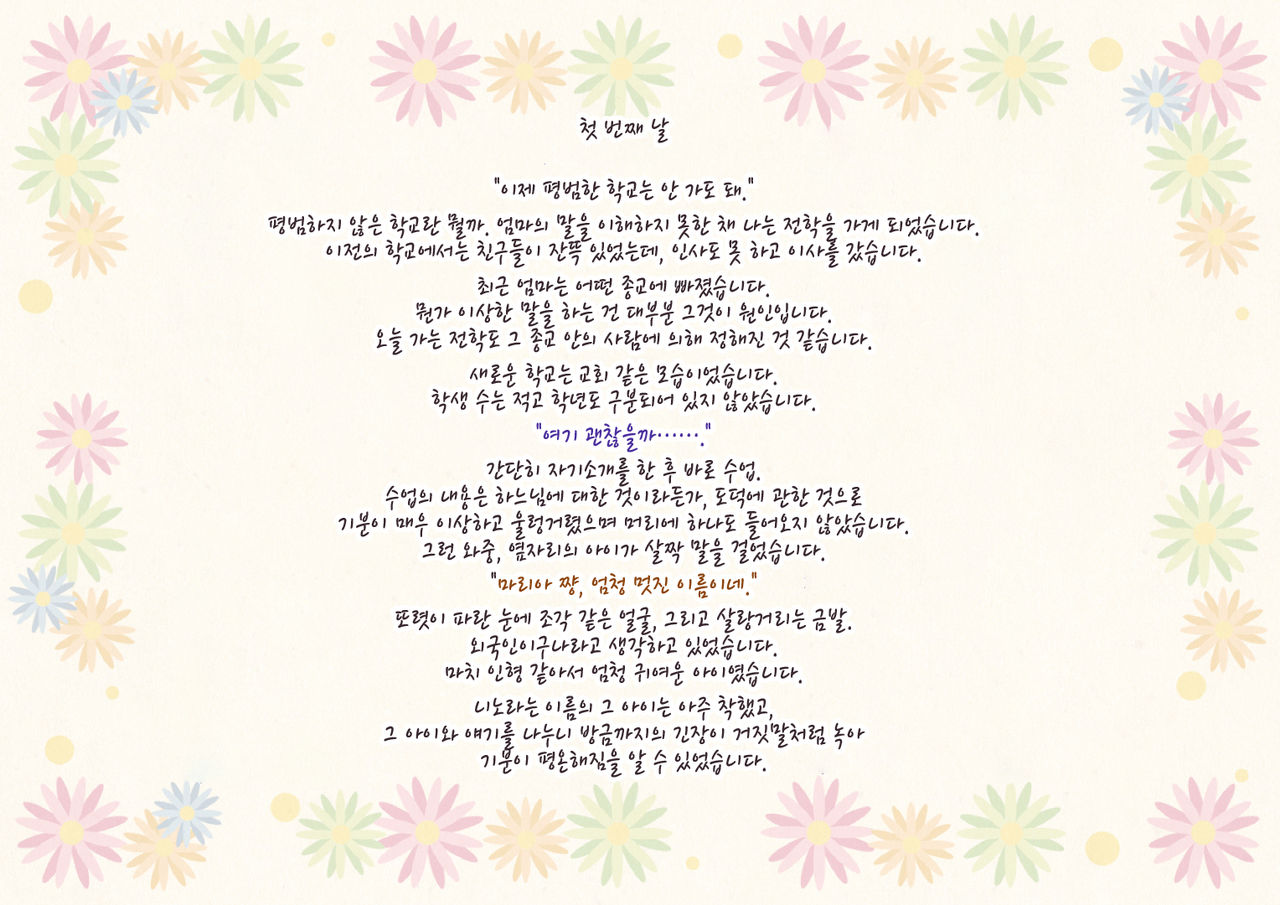 첫 번째 날
"이제 평범한 학교는 안 가도 돼."
평범하지 않은 학교란 뭘까. 엄마의 말을 이해하지 못한 채 나는 전학을 가게 되었습니다.
이전의 학교에서는 친구들이 잔뜩 있었는데, 인사도 못 하고 이사를 갔습니다.
최근 엄마는 어떤 종교에 빠졌습니다.
뭔가 이상한 말을 하는 건 대부분 그것이 원인입니다.
오늘 가는 전학도 그 종교 안의 사람에 의해 정해진 것 같습니다.
새로운 학교는 교회 같은 모습이었습니다.
학생 수는 적고 학년도 구분되어 있지 않았습니다.
"여기 괜찮을까……."
간단히 자기소개를 한 후 바로 수업.
수업의 내용은 하느님에 대한 것이라든가, 도덕에 관한 것으로
기분이 매우 이상하고 울렁거렸으며 머리에 하나도 들어오지 않았습니다.
그런 와중, 옆자리의 아이가 살짝 말을 걸었습니다.
"마리아 쨩, 엄청 멋진 이름이네."
또렷이 파란 눈에 조각 같은 얼굴, 그리고 살랑거리는 금발.
외국인이구나라고 생각하고 있었습니다.
마치 인형 같아서 엄청 귀여운 아이였습니다.
니노라는 이름의 그 아이는 아주 착했고,
그 아이와 얘기를 나누니 방금까지의 긴장이 거짓말처럼 녹아
기분이 평온해짐을 알 수 있었습니다.